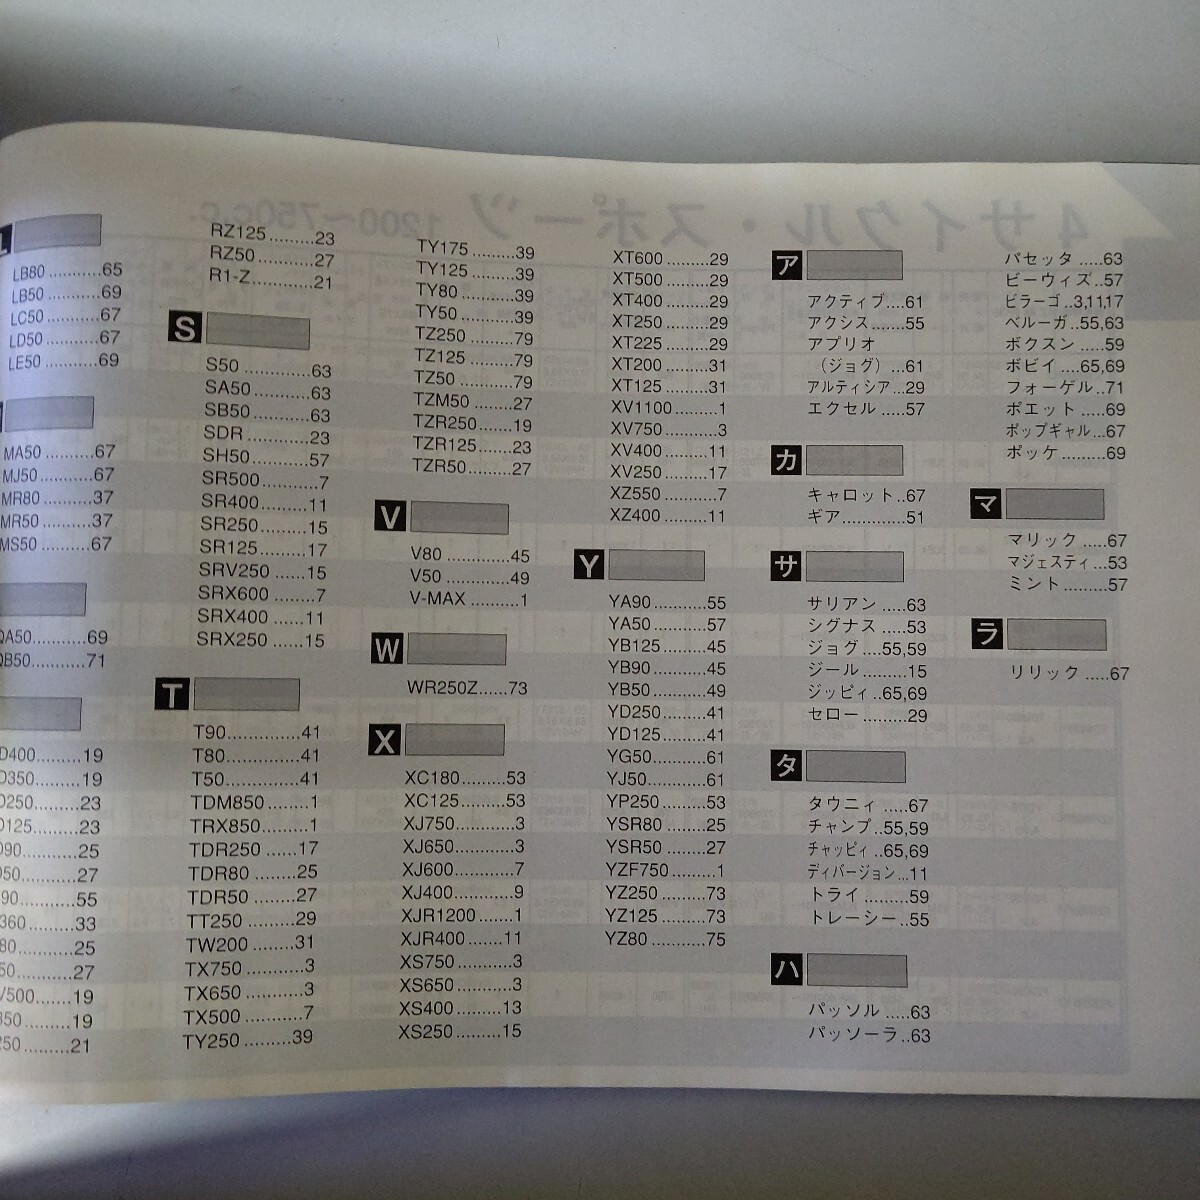 L
LB80...........65
LB50...........69
LC50...........67
LD50...........67
LE50...........69
MA50..........67
MJ50..........67
MR80..........37
MR50..........37
MS50..........67
QA50...........69
QB50...........71
D400..........19
D350..........19
D250..........23
D125..........23
D90..........25
D50..........27
90..........55
360..........33
80..........25
50..........27
V500.........19
350.........19
250.........21
RZ125.........23
RZ50...........27
R1-Z............21
S
S50.............63
SA50...........63
SB50...........63
SDR............23
SH50...........57
SR500...........7
SR400.........11
SR250.........15
SR125.........17
SRV250......15
SRX600........7
SRX400......11
SRX250......15
T
T90..............41
T80..............41
T50..............41
TDM850.......1
TRX850.........1
TDR250......17
TDR80........25
TDR50........27
TT250.........29
TW200........31
TX750..........3
TX650..........3
TX500..........7
TY250.........39
TY175.........39
TY125.........39
TY80...........39
TY50...........39
TZ250.........79
TZ125.........79
TZ50...........79
TZM50........27
TZR250.......19
TZR125.......23
TZR50.........27
V
V80.............45
V50.............49
V-MAX..........1
W
WR250Z......73
X
XC180.........53
XC125.........53
XJ750............3
XJ650............3
XJ600............7
XJ400............9
XJR1200.......1
XJR400.......11
XS750...........3
XS650...........3
XS400.........13
XS250.........15
XT600.........29
XT500.........29
XT400.........29
XT250.........29
XT225.........29
XT200.........31
XT125.........31
XV1100.........1
XV750...........3
XV400.........11
XV250.........17
XZ550...........7
XZ400.........11
Y
YA90...........55
YA50...........57
YB125.........45
YB90...........45
YB50...........49
YD250.........41
YD125.........41
YG50...........61
YJ50............61
YP250.........53
YSR80........25
YSR50........27
YZF750........1
YZ250.........73
YZ125.........73
YZ80...........75
ア
アクティブ....61
アクシス.......55
アプリオ
(ジョグ)....61
アルティシア..29
エクセル.....57
カ
キャロット..67
ギア.............51
サ
サリアン.....63
シグナス.....53
ジョグ....55,59
ジール.........15
ジッピィ..65,69
セロー.........29
タ
タウニィ.....67
チャンプ..55,59
チャッピィ..65,69
ディバージョン...11
トライ.........59
トレーシー..55
ハ
パッソル.....63
パッソーラ..63
パセッタ.....63
ビーウィズ..57
ビラーゴ..3,11,17
ベルーガ..55,63
ボクスン.....59
ボビイ....65,69
フォーゲル..71
ポエット.....69
ポップギャル...67
ポッケ.........69
マ
マリック.....67
マジェスティ...53
ミント.........57
ラ
リリック.....67
4サイクル・スポーツ 1200〜750c.c.